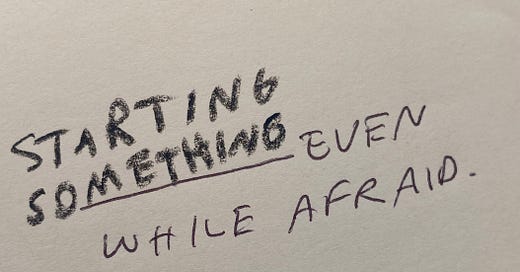 STARTING
SOMETHING EVEN
WHILE AFRAID.